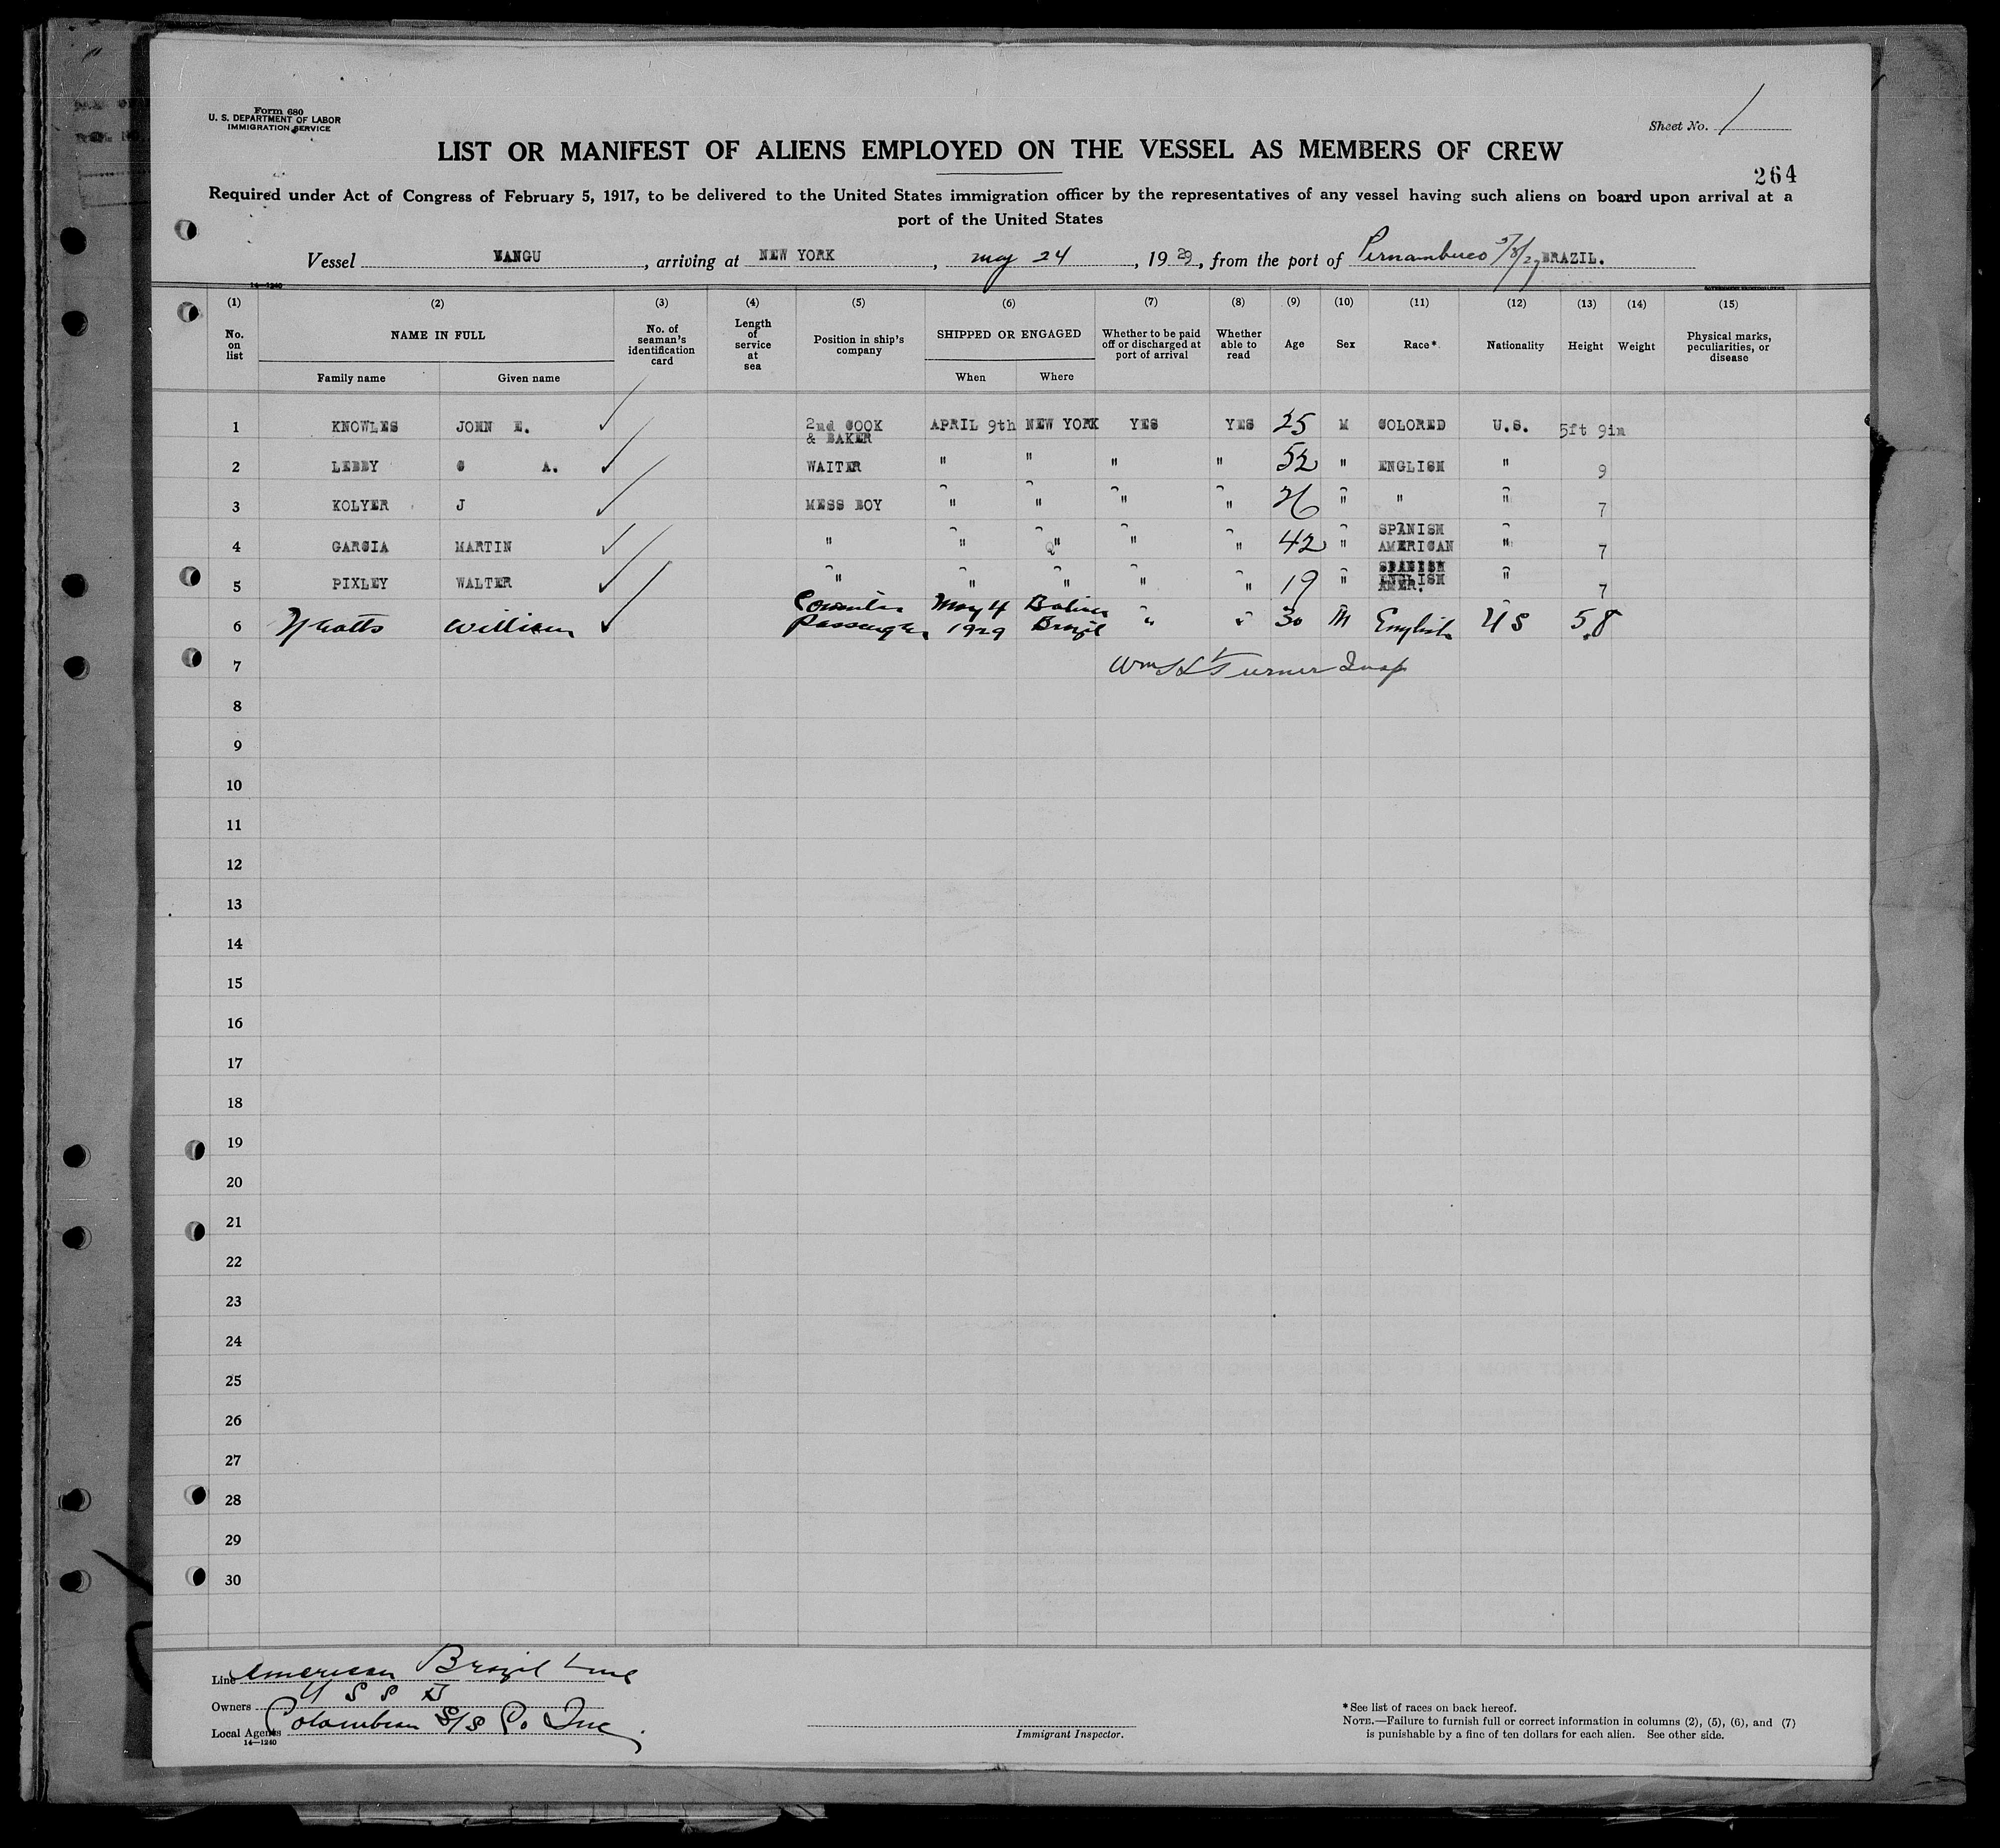 Form 680
U. S. DEPARTMENT OF LABOR
IMMIGRATION SERVICE
Sheet No. 1
LIST OR MANIFEST OF ALIENS EMPLOYED ON THE VESSEL AS MEMBERS OF CREW
264
Required under Act of Congress of February 5, 1917, to be delivered to the United States immigration officer by the representatives of any vessel having such aliens on board upon arrival at a
port of the United States
Vessel , arriving at NEW YORK , may 24 , 19 29 , from the port of Pernambuco 5/8/29 BRAZIL.
14—1240
(1) (2) (3) (4) (5) (6) (7) (8) (9) (10) (11) (12) (13) (14) (15)
No. on list NAME IN FULL No. of seaman's identification card Length of service at sea Position in ship's company SHIPPED OR ENGAGED Whether to be paid off or discharged at port of arrival Whether able to read Age Sex Race* Nationality Height Weight Physical marks, peculiarities, or disease
Family name Given name When Where
1 KNOWLES JOHN E. ✓ 2nd COOK & BAKER APRIL 9th NEW YORK YES YES 25 M COLORED U.S. 5ft 9in
2 LEBBY C A. ✓ WAITER " " " " 52 " ENGLISH " 9
3 KOLYER J ✓ MESS BOY " " " " 26 " " " 7
4 GARCIA MARTIN ✓ " " " " " 42 " SPANISH AMERICAN " 7
5 PIXLEY WALTER ✓ " " " " " 19 " ENGLISH " 7
6 William ✓ Passenger May 4 1929 Brazil " " 30 M English US 5.8
7 Wm Turner Insp
8
9
10
11
12
13
14
15
16
17
18
19
20
21
22
23
24
25
26
27
28
29
30
Line American Brazil Line
Owners U S S B
Local Agents Colombian S/S Co Inc.
14—1240
Immigrant Inspector.
*See list of races on back hereof.
NOTE.—Failure to furnish full or correct information in columns (2), (5), (6), and (7)
is punishable by a fine of ten dollars for each alien. See other side.